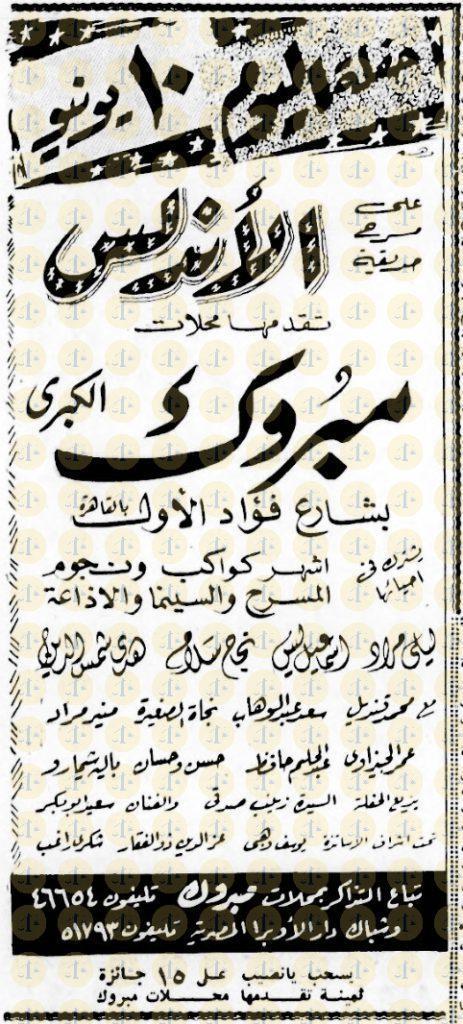 حفلة اليوم ١٠ يونيو
على مسرح حديقة
الأندلس
تقدمها محلات
مبروك الكبرى
بشارع فؤاد الأول بالقاهرة
يشترك في احيائها
اشهر كواكب ونجوم
المسرح والسينما والاذاعة
ليلى مراد اسماعيل يس نجاح سلام هدى شمس الدين
مع محمد قنديل سعد عبد الوهاب نجاة الصغيرة منير مراد
عمر الجيزاوى عبد الحليم حافظ حسن وحسان باليه شيمارو
يذيع الحفلة السيدة زينب صدقى والفنان سعيد ابو بكر
تحت اشراف الاساتذة يوسف وهبى عز الدين ذو الفقار شكرى راغب
تباع التذاكر بمحلات مبروك تليفون ٤٦٦٥٤
وشباك دار الأوبرا المصرية تليفون ٥١٧٩٣
يسحب يانصيب على ١٥ جائزة
ثمينة تقدمها محلات مبروك